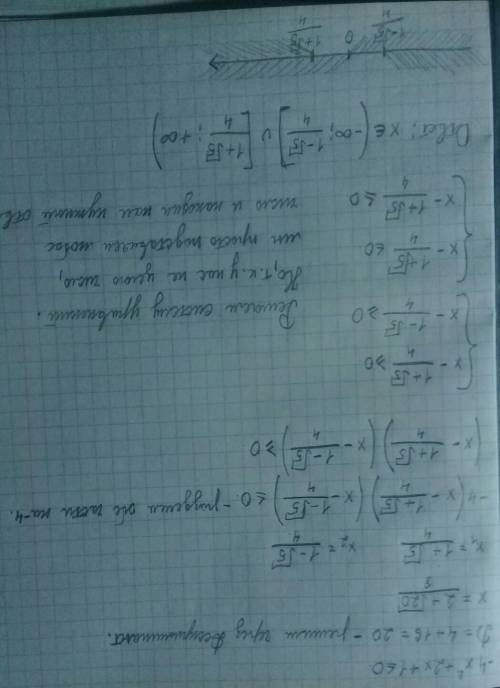 -4x²+2x+1≤0
D=4+16=20 - решаем через дескриминант.
x = (2±√20)/8
x₁ = (1+√5)/4 x₂ = (1-√5)/4
-4(x - (1+√5)/4)(x - (1-√5)/4) ≤ 0 - разделим обе части на -4.
(x - (1+√5)/4)(x - (1-√5)/4) ≥ 0
{ x - (1+√5)/4 ≥ 0
x - (1-√5)/4 ≥ 0 Решаем систему уравнений.
{ x - (1+√5)/4 ≤ 0 Но, т.к. у нас не целое число,
мы просто подставляем любое
x - (1+√5)/4 ≤ 0 число и находим нам нужный отв
Ответ: x∈(-∞; (1-√5)/4] ∪ [(1+√5)/4; +∞)
(1-√5)/4 0 (1+√5)/4